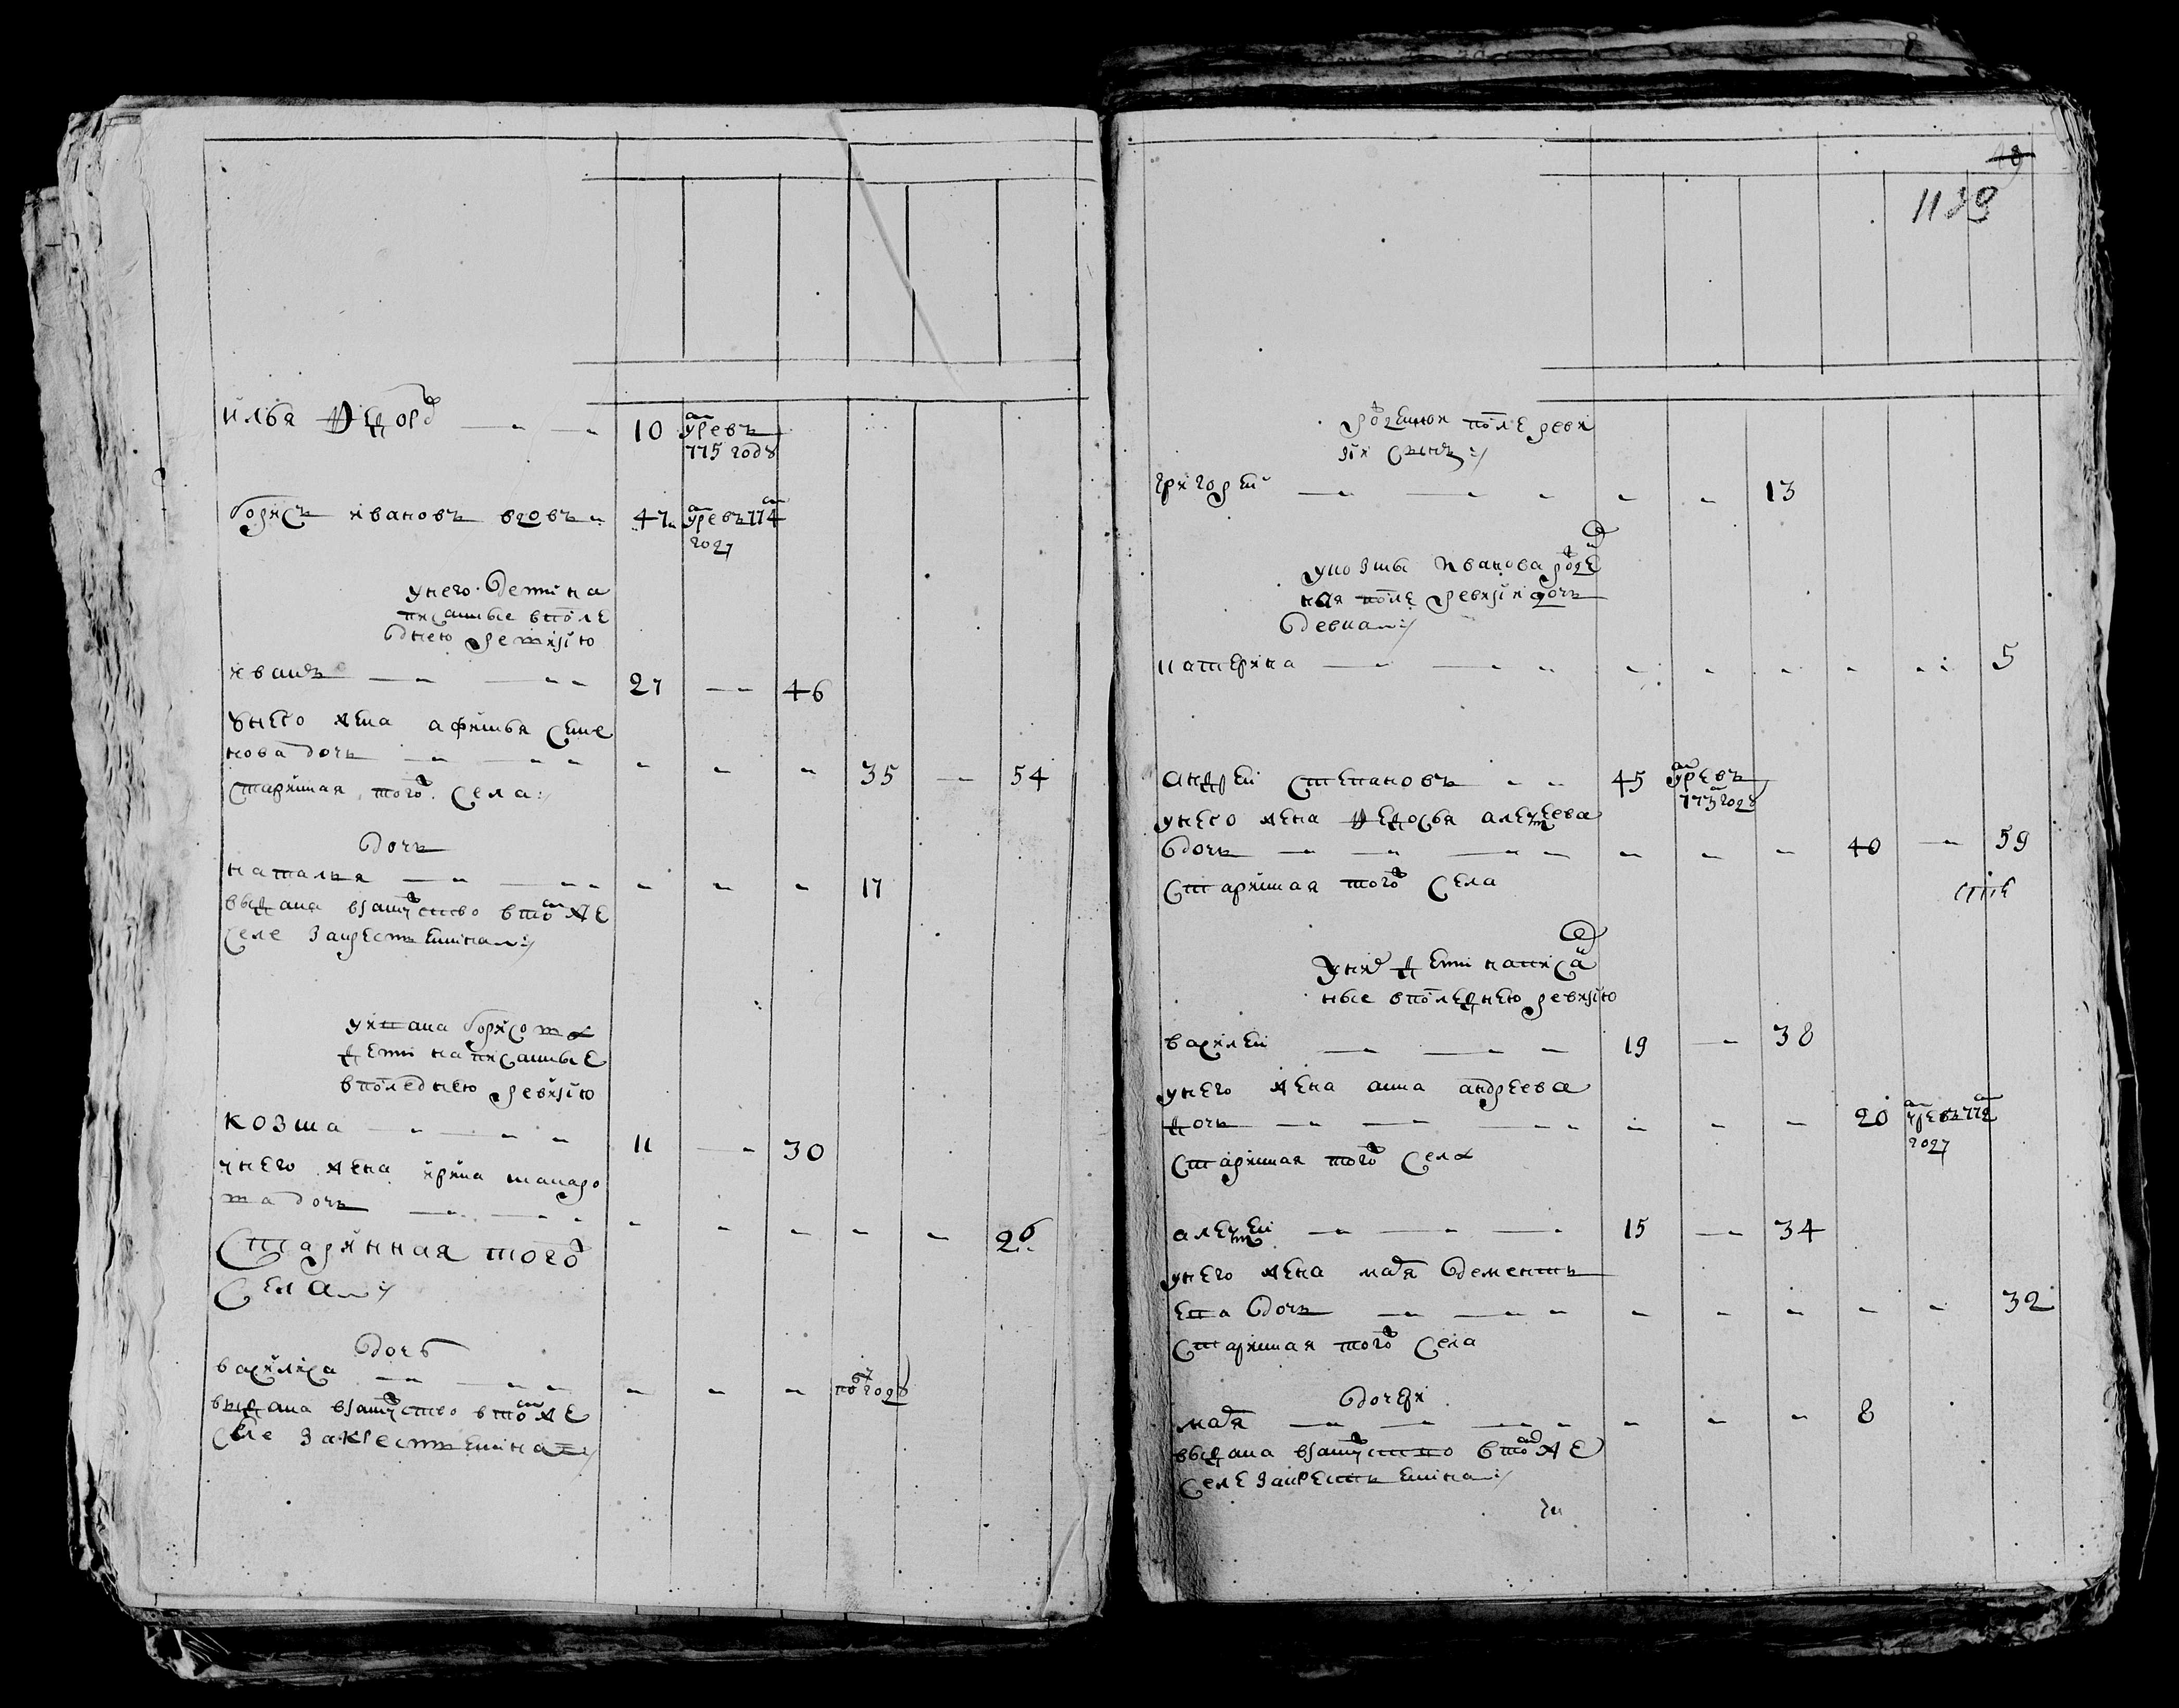 илья федоро — — 10 умре въ
775 году
борисъ ивановъ вдовъ 47 умре въ 774
году
у него дети на
писанные в после
днею ревизию
иванъ — — 27 — 46
у него жена афимья семе
нова дочь — — — — — 35 — 54
старинная того села
дочь
наталья — — — — — 17
выдана в замужство в том же
селе за крестьянина
у ивана борисова
дети написанные
в последнею ревизию
козма — — 11 — 30
у него жена ирина
дочь — — — — — — — 26
старинная того
села
дочь
василиса — — — — —
выдана в замужство в том же
селе за крестьянина
1139
рожденной после реви
зии сынъ
григорей — — — — — 13
у козмы иванова рожден
ная после ревизии дочь
девка
катерина — — — — — — — 5
андрей степановъ — — 45 умре въ
773 году
у него жена федосья алексеева
дочь — — — — — — 40 — 59
старинная того села
у них дети написан
ные в последнею ревизию
василей — — — 19 — 38
у него жена анна андреева
дочь — — — — — — 20 умре въ 772
году
старинная того села
алексей — — — 15 — 34
у него жена марья дементь
ева дочь — — — — — — — — 32
старинная того села
дочери
марья — — — — — — 8
выдана в замужство в том же
селе за крестьянина